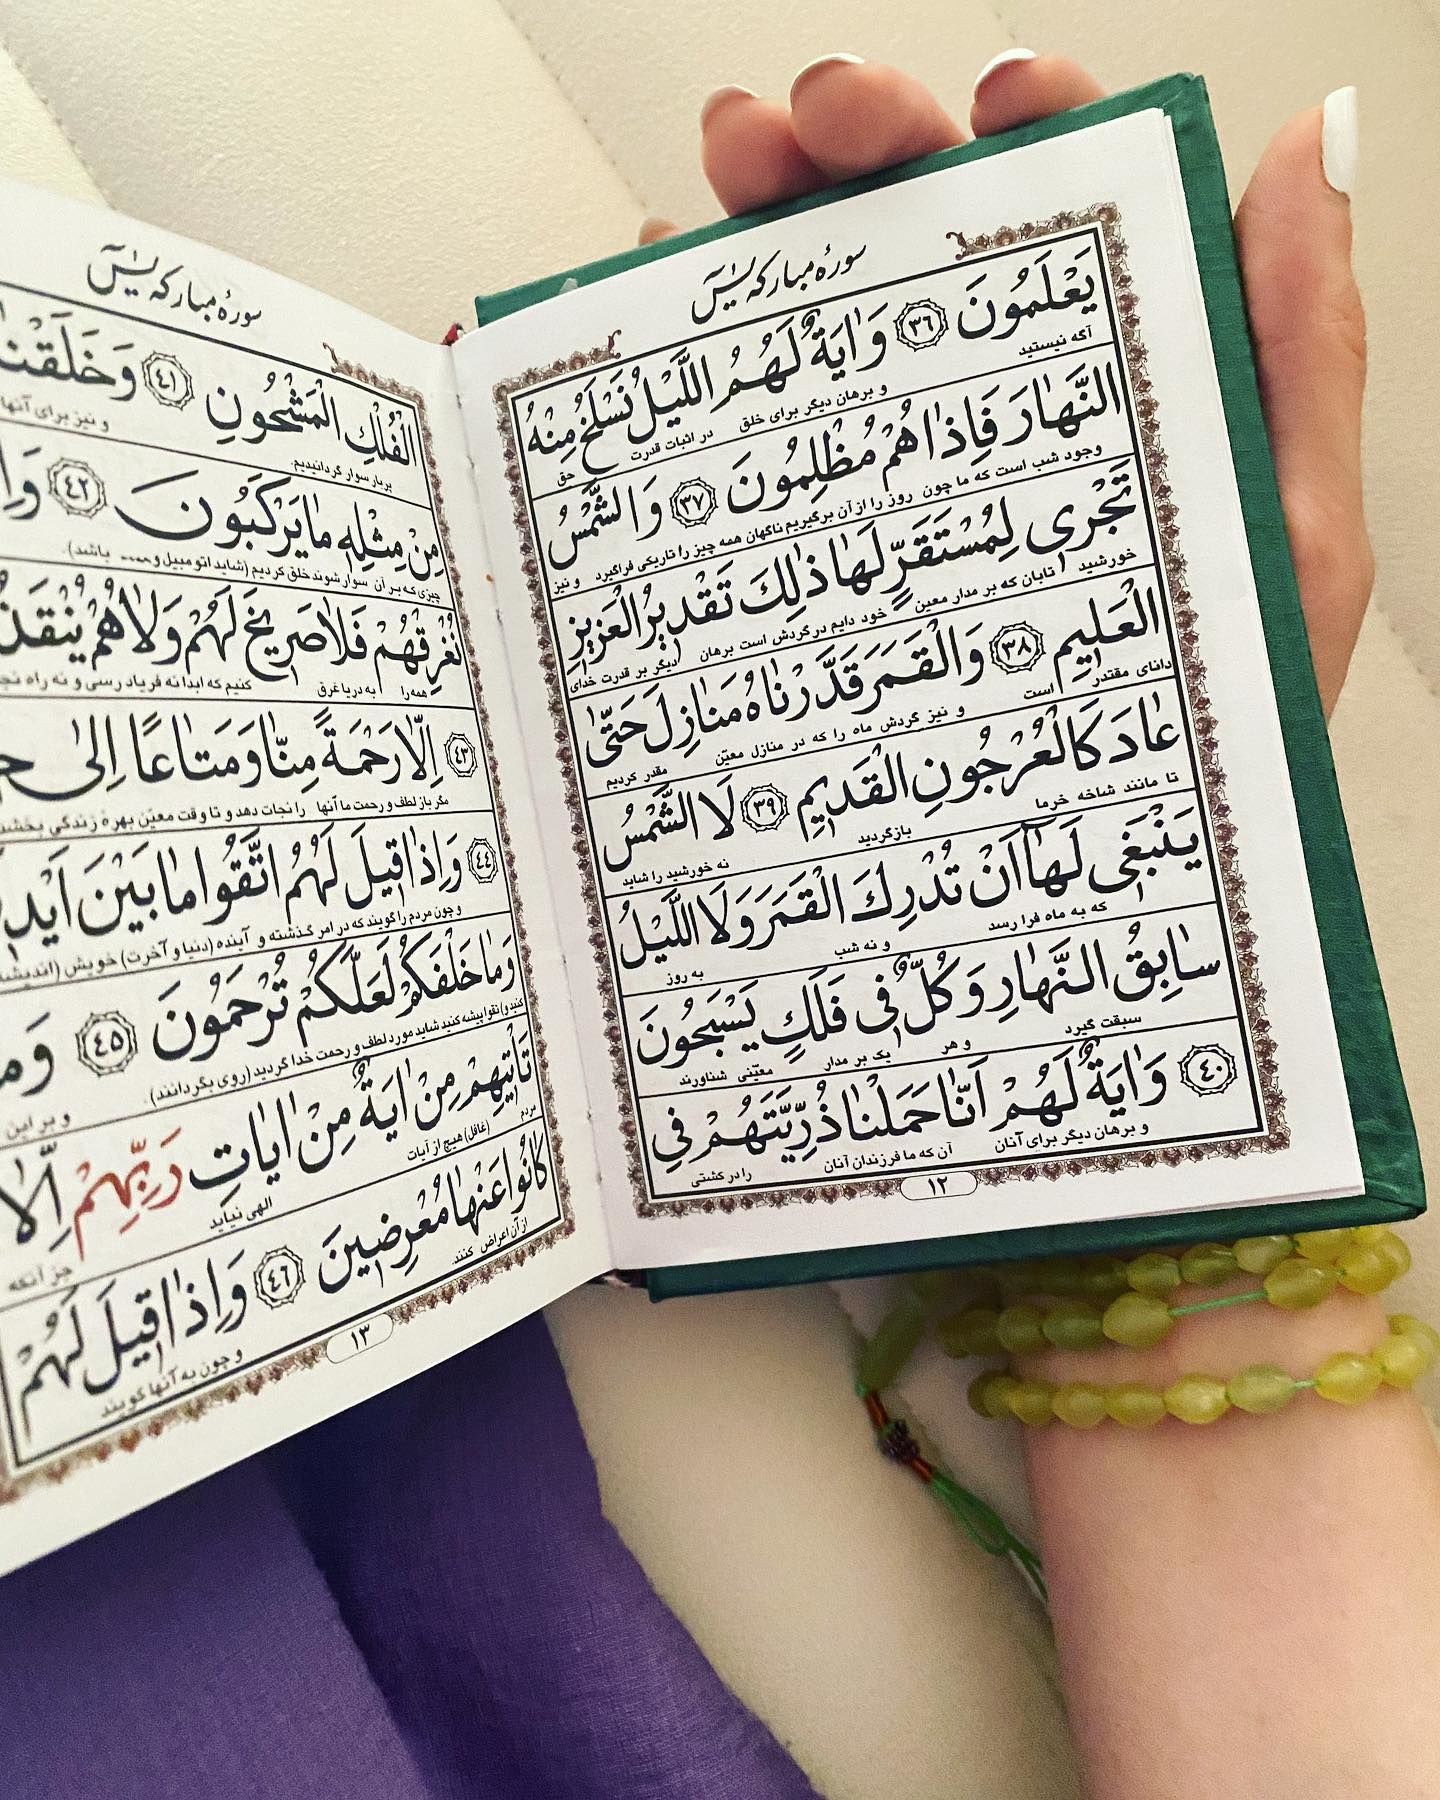 سورهٔ مبارکه یٰسٓ
یَعْلَمُونَ ﴿٣٦﴾ وَ اٰیَةٌ لَهُمُ اللَّیْلُ نَسْلَخُ مِنْهُ
آگه نیستید و برهان دیگر برای خلق در اثبات قدرت حق
النَّهٰارَ فَاِذٰا هُمْ مُظْلِمُونَ ﴿٣٧﴾ وَ الشَّمْسُ
وجود شب است که ما چون روز را از آن برگیریم ناگهان همه چیز را تاریکی فراگیرد و نیز
تَجْری لِمُسْتَقَرٍّ لَهٰا ذٰلِكَ تَقْدیرُ الْعَزیزِ
خورشید تابان که بر مدار معین خود دایم در گردش است برهان دیگر بر قدرت خدای
الْعَلیمِ ﴿٣٨﴾ وَ الْقَمَرَ قَدَّرْنٰاهُ مَنٰازِلَ حَتّٰی
دانای مقتدر است و نیز گردش ماه را که در منازل معیّن مقدر کردیم
عٰادَ کَالْعُرْجُونِ الْقَدیمِ ﴿٣٩﴾ لَا الشَّمْسُ
تا مانند شاخه خرما بازگردید نه خورشید را شاید
یَنْبَغی لَهٰا اَنْ تُدْرِكَ الْقَمَرَ وَ لَا اللَّیْلُ
که به ماه فرا رسد و نه شب به روز
سٰابِقُ النَّهٰارِ وَ کُلٌّ فی فَلَكٍ یَسْبَحُونَ
سبقت گیرد و هر یک بر مدار معیّنی شناورند
﴿٤٠﴾ وَ اٰیَةٌ لَهُمْ اَنّٰا حَمَلْنٰا ذُرِّیَّتَهُمْ فِی
و برهان دیگر برای آنان آن که ما فرزندان آنان را در کشتی
١٢
سورهٔ مبارکه یٰسٓ
الْفُلْكِ الْمَشْحُونِ ﴿٤١﴾ وَ خَلَقْنٰا
پربار سوار گردانیدیم. و نیز برای آنها
مِنْ مِثْلِهِ مٰا یَرْکَبُونَ ﴿٤٢﴾
چیزی که بر آن سوار شوند خلق کردیم (شاید اتومبیل و... باشد).
نُغْرِقْهُمْ فَلٰا صَریخَ لَهُمْ وَ لٰا هُمْ
همه را به دریا غرق کنیم که ابدا نه فریاد رسی و نه راه
﴿٤٣﴾ اِلّٰا رَحْمَةً مِنّٰا وَ مَتٰاعًا اِلیٰ
مگر باز لطف و رحمت ما آنها را نجات دهد و تا وقت معیّن بهره زندگی
﴿٤٤﴾ وَ اِذٰا قیلَ لَهُمُ اتَّقُوا مٰا بَیْنَ
و چون مردم را گویند که در امر گذشته و آینده (دنیا و آخرت) خویش
وَ مٰا خَلْفَکُمْ لَعَلَّکُمْ تُرْحَمُونَ ﴿٤٥﴾
کنید و) تقوا پیشه کنید شاید مورد لطف و رحمت خدا گردید (روی بگردانند). و بر این
تَأْتیهِمْ مِنْ اٰیَةٍ مِنْ اٰیٰاتِ رَبِّهِمْ اِلّٰا
مردم (غافل) هیچ از آیات الهی نیاید جز آنکه
کٰانُوا عَنْهٰا مُعْرِضینَ ﴿٤٦﴾ وَ اِذٰا قیلَ لَهُمْ
از آن اعراض کنند و چون به آنها گویند
١٣